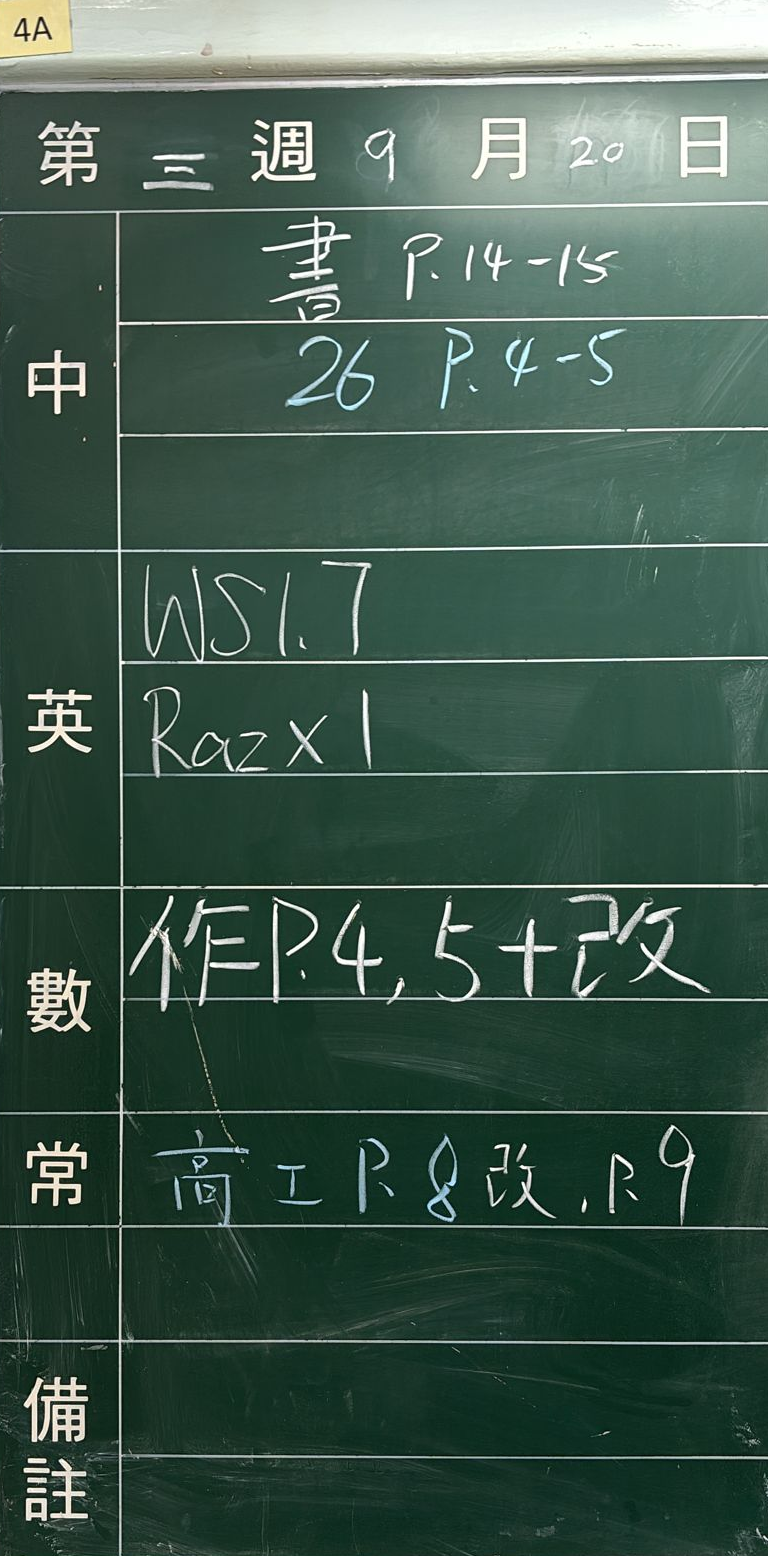 4A
第 三 週 9 月 20 日
中
書 P.14-15
26 P.4-5
英
WS1.7
Raz x 1
數
作P.4,5+改
常
高工P.8改.P.9
備註